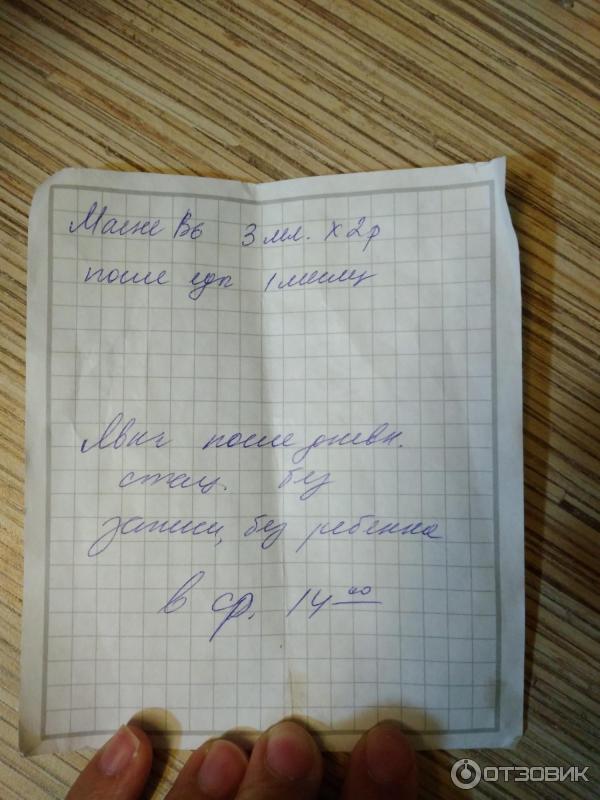 Магне В6 3 мл. х 2р
после еды 1 месяц
Явка после дневн.
стац. без
записи, без ребенка
в ср. 14⁰⁰
ОТЗОВИК